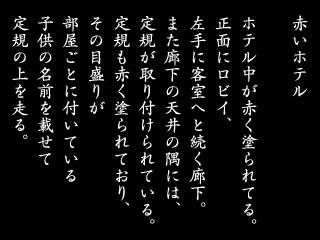 赤いホテル
ホテル中が赤く塗られてる。
正面にロビイ、
左手に客室へと続く廊下。
また廊下の天井の隅には、
定規が取り付けられている。
定規も赤く塗られており、
その目盛りが
部屋ごとに付いている
子供の名前を載せて
定規の上を走る。